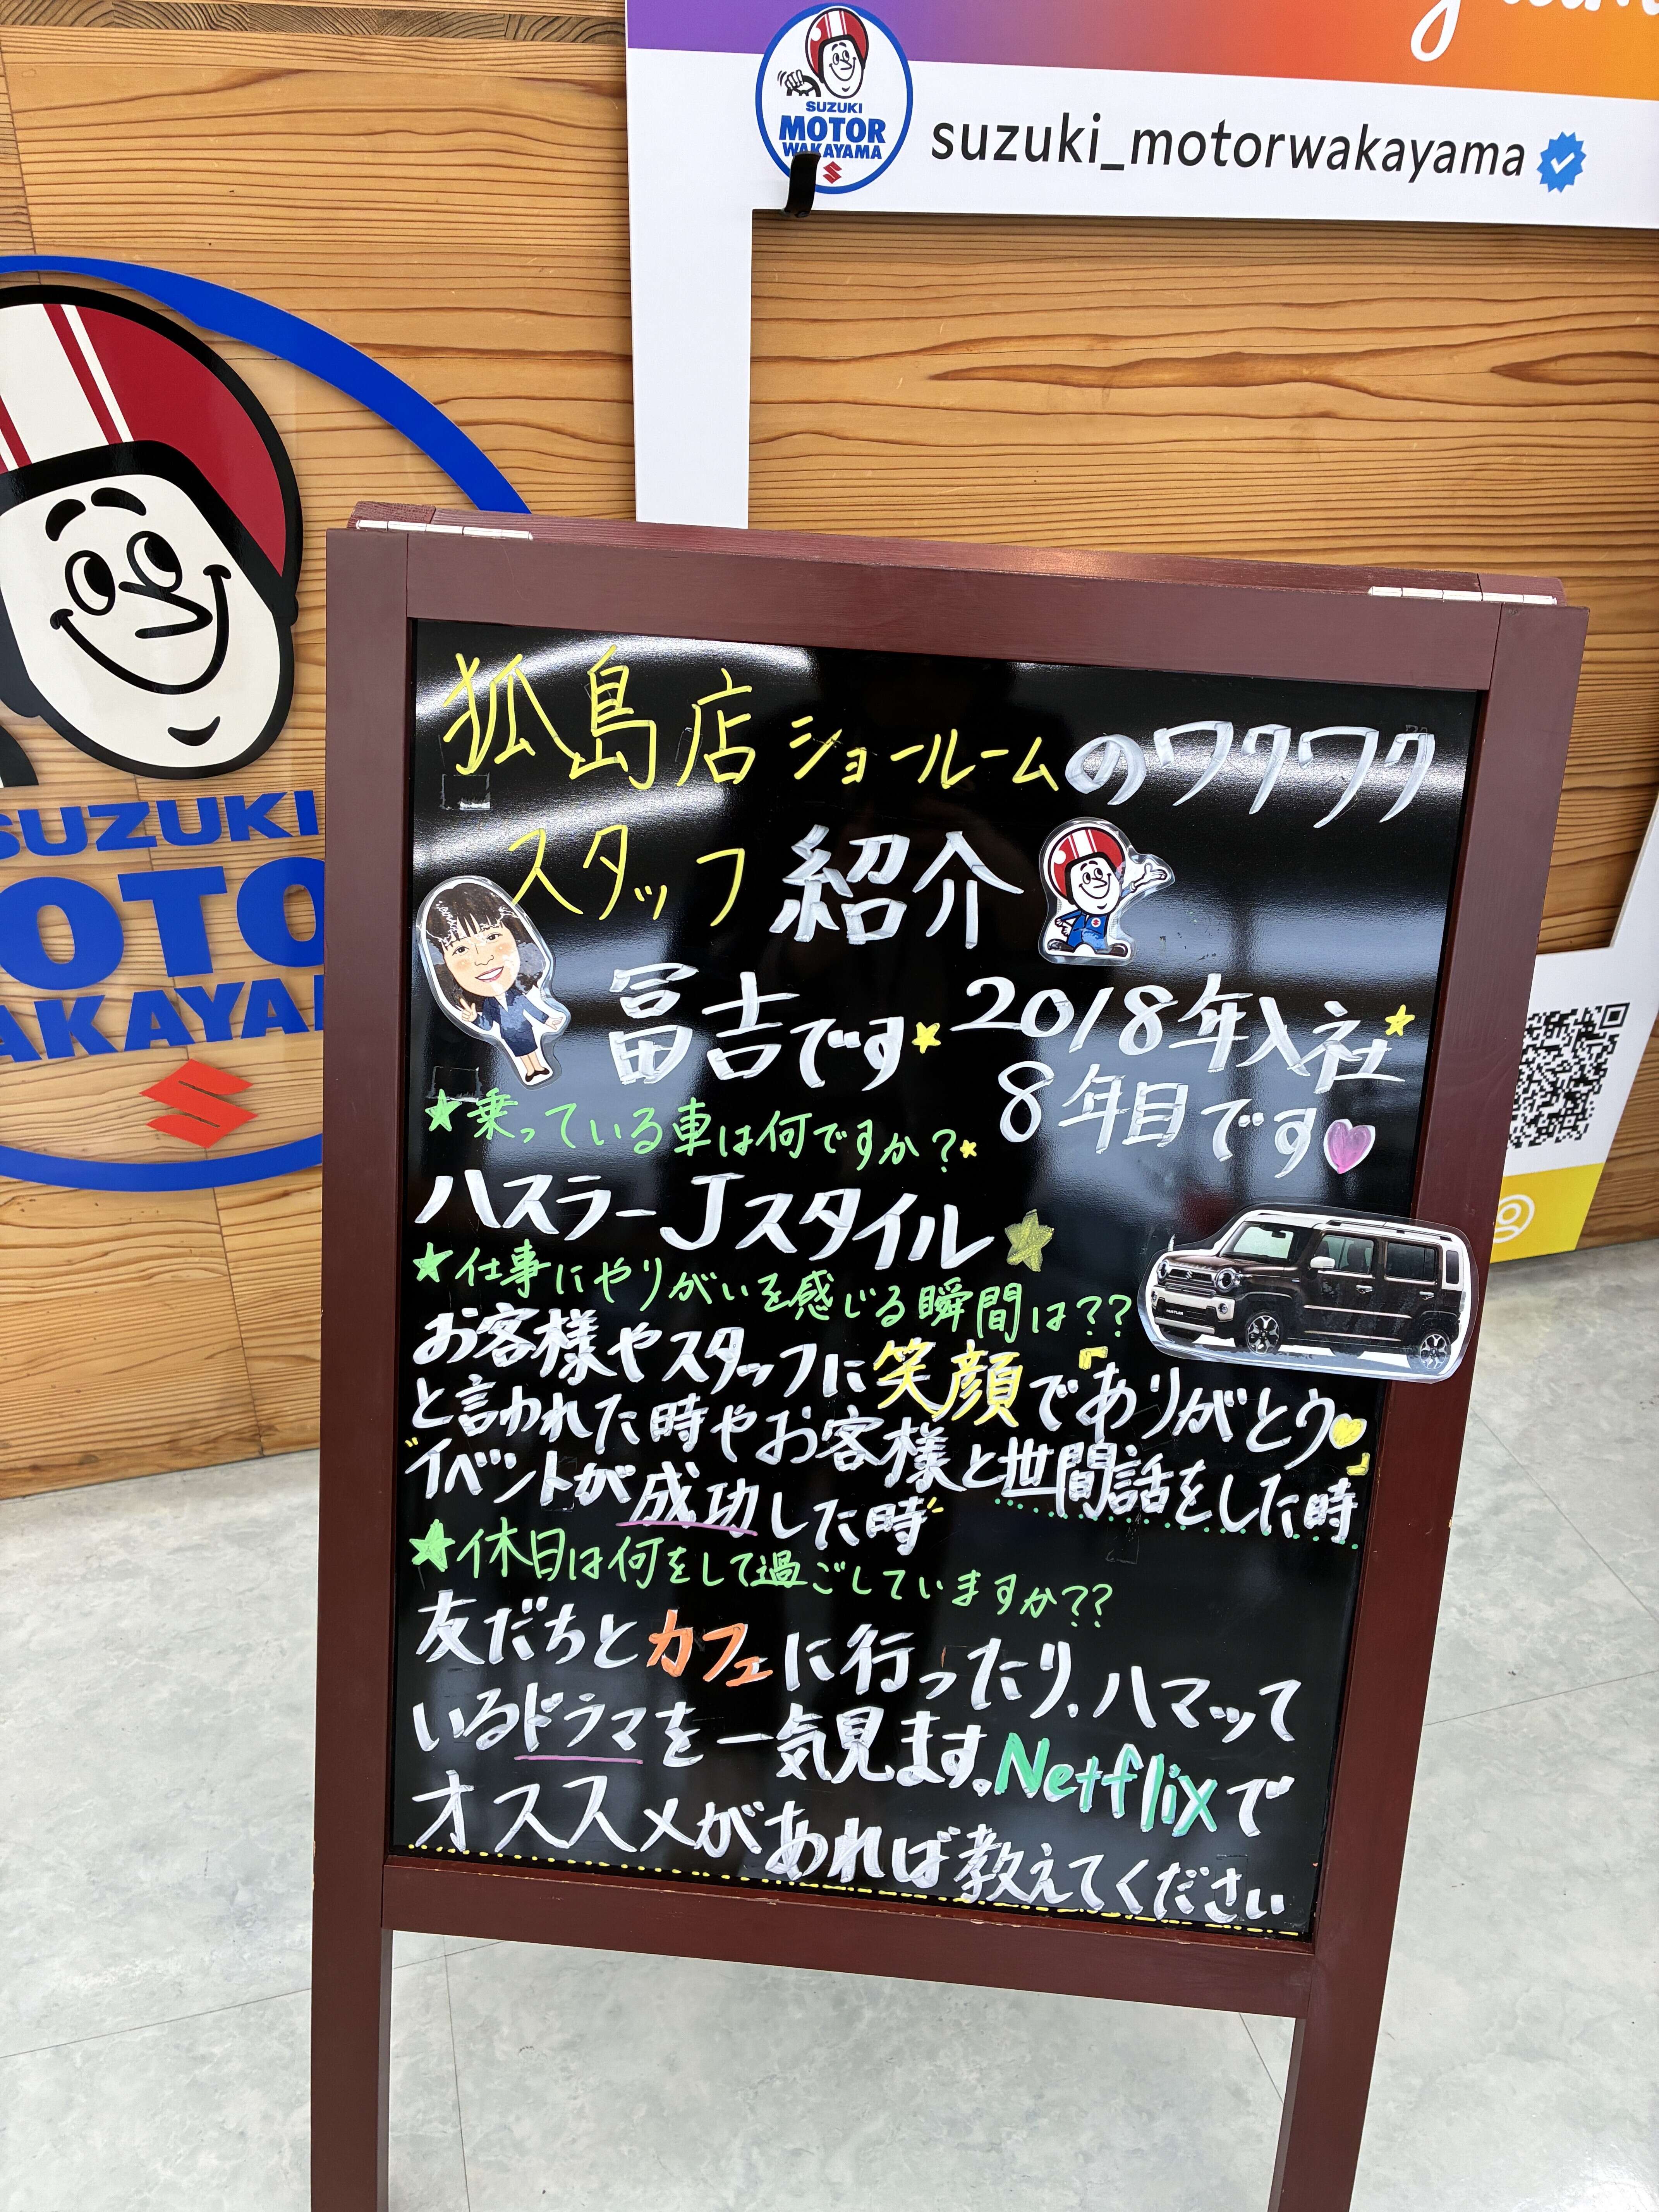 SUZUKI
MOTOR
WAKAYAMA
suzuki_motorwakayama
狐島店ショールームのワクワク
スタッフ紹介
冨吉です 2018年入社
8年目です
★乗っている車は何ですか?
ハスラーJスタイル
★仕事にやりがいを感じる瞬間は??
お客様やスタッフに笑顔で「ありがとう」
と言われた時やお客様と世間話をした時
"イベントが成功した時"
★休日は何をして過ごしていますか??
友だちとカフェに行ったり、ハマって
いるドラマを一気見ます。Netflixで
オススメがあれば教えてください
SUZUKI
OTO
AKAYA